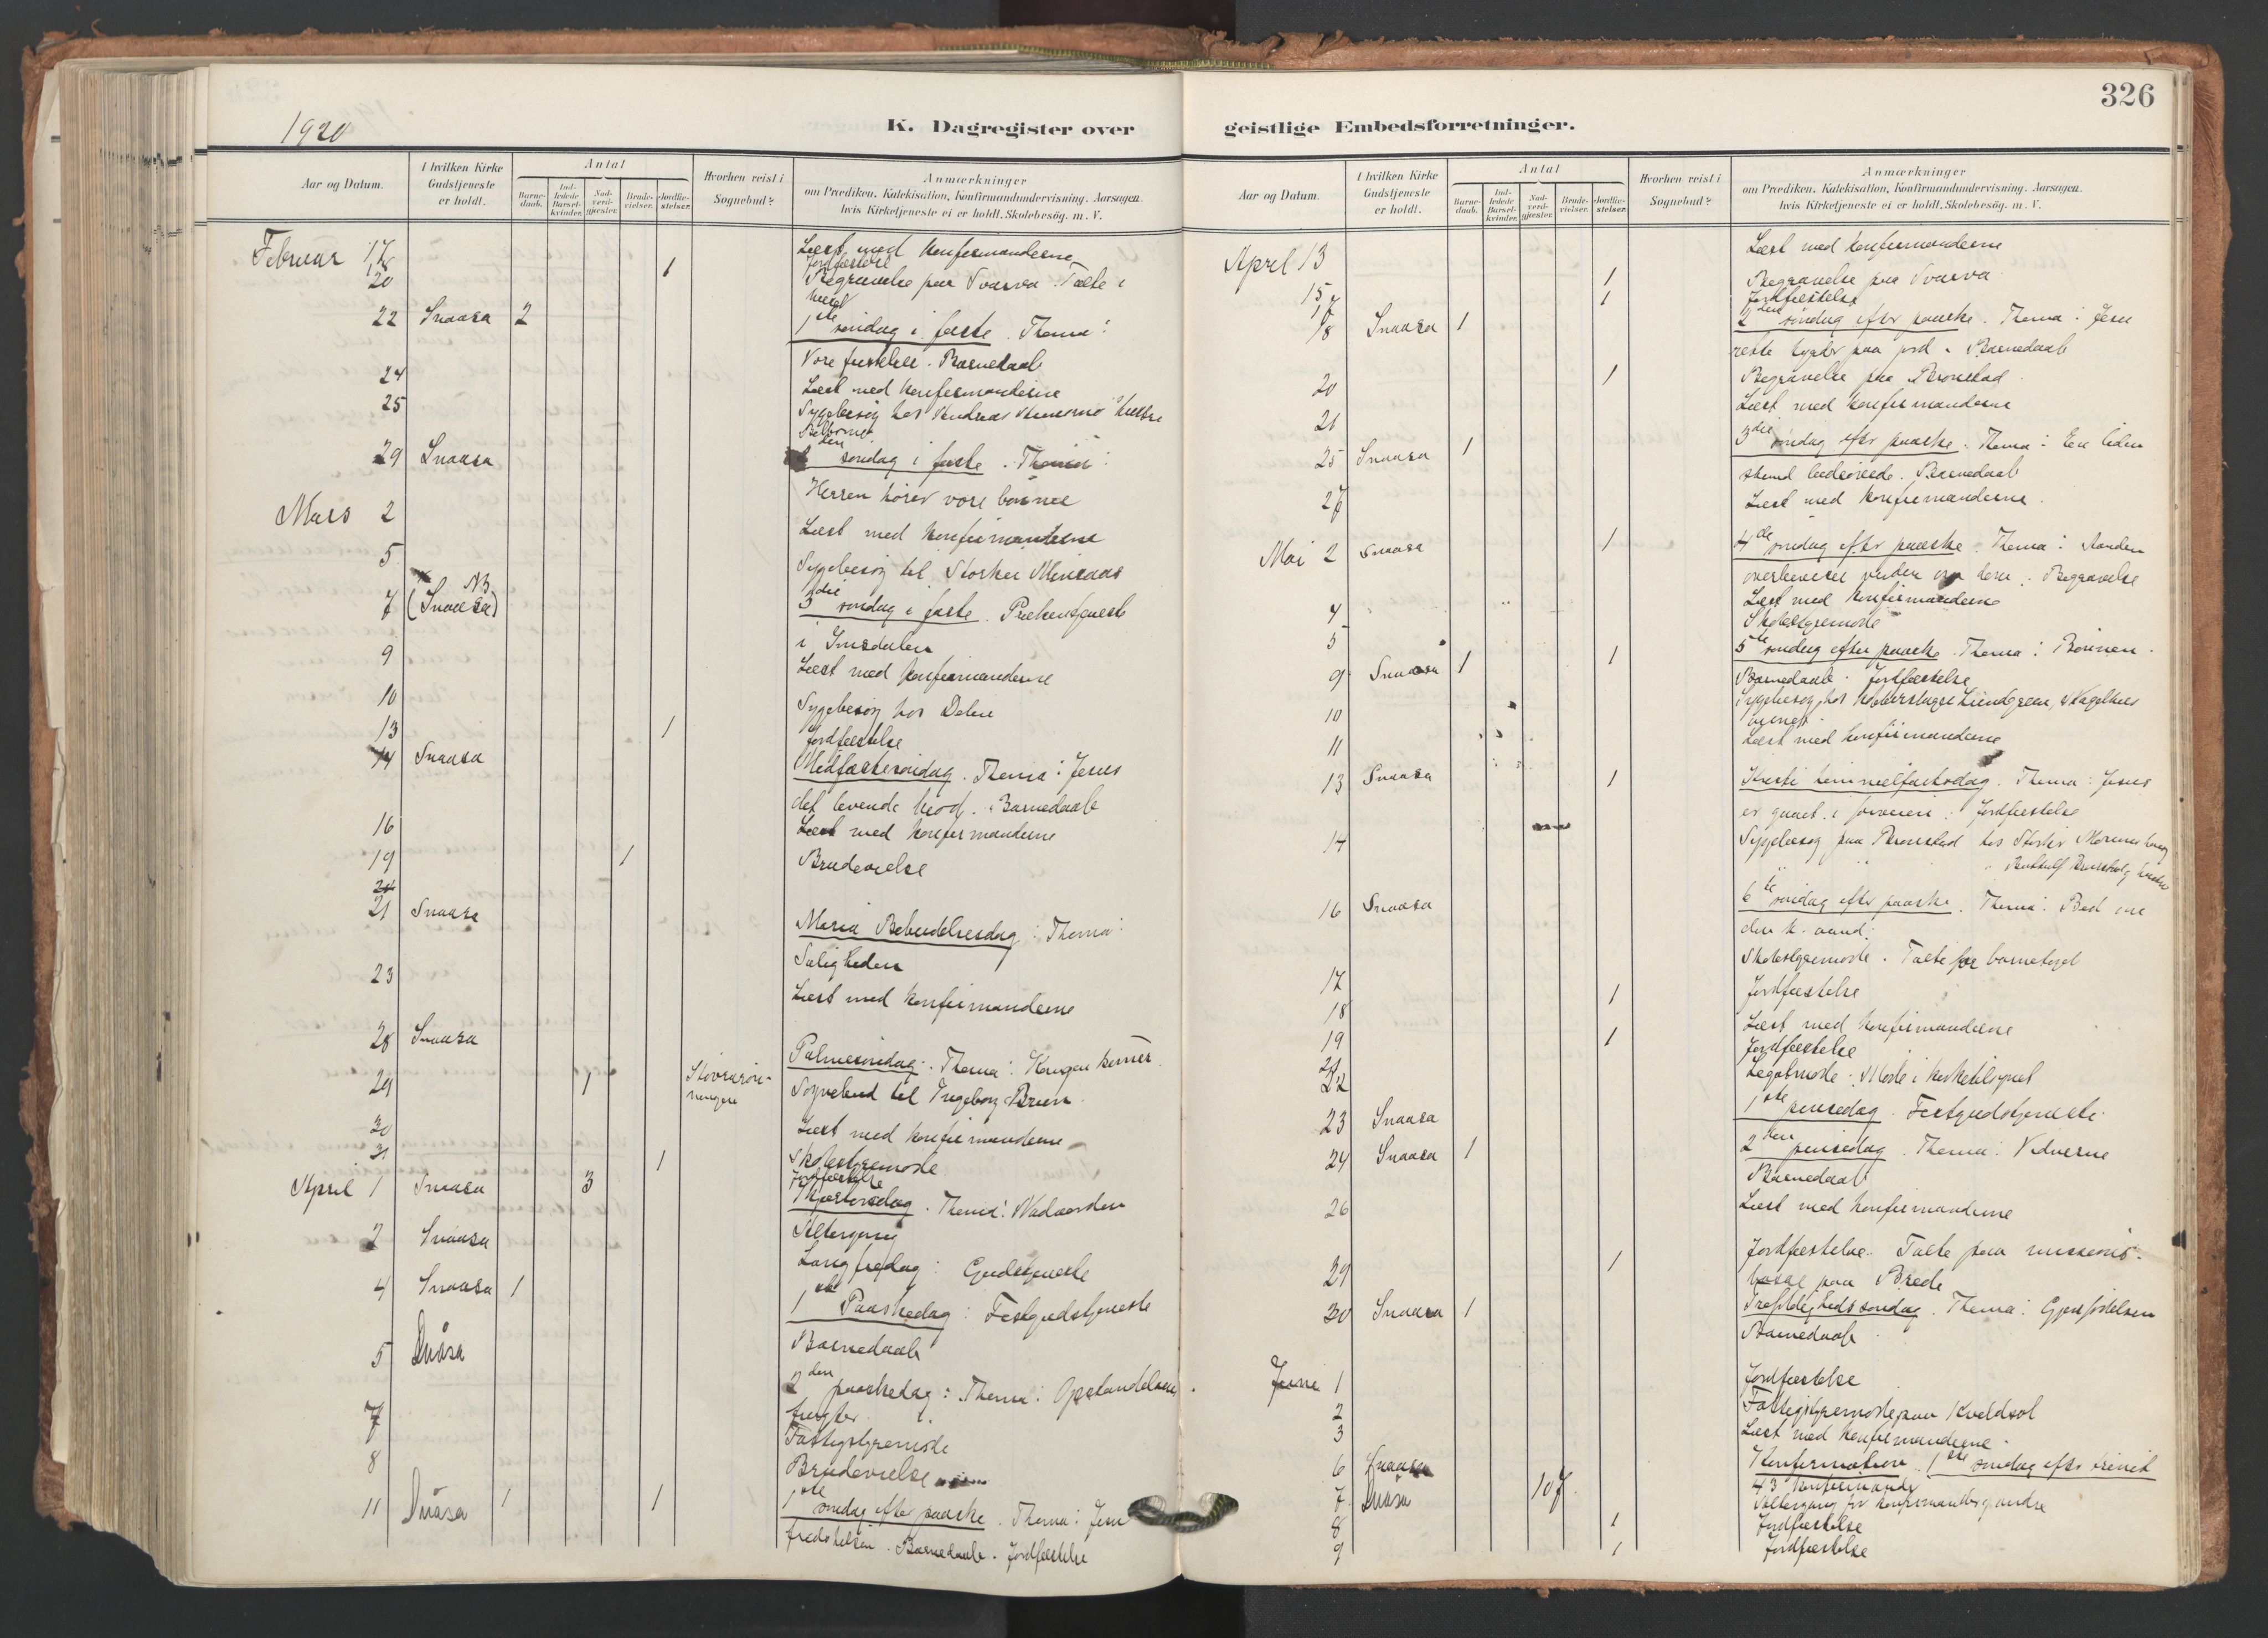 326
1920
K. Dagregister over geistlige Embedsforretninger.
Aar og Datum.
I hvilken Kirke Gudstjeneste er holdt.
Antal
Barne-daab.
Ind-ledede Barsel-kvinder.
Nad-verd-gjester.
Brude-vielser.
Jordfæ-stelser.
Hvorhen reist i Sognebud?
Anmærkninger
om Prædiken, Katekisation, Konfirmandundervisning. Aarsagen
hvis Kirketjeneste ei er holdt. Skolebesög. m. V.
Februar 17 Læst med konfirmanderne
18 Jordfæstelse
20 1 Begravelse paa Tvarva. Talte i
22 Snaasa 2 1ste søndag i faste. Thema:
Vore fristelser. Barnedaab
24 Læst med konfirmanderne
25 Sygebesøg hos
29 Snaasa den søndag i faste. Thema:
Herren hører vore bønner
Mars 2 Læst med konfirmanderne
5 Sygebesøg til
NB
7 (Snaasa) 3die søndag i faste. Prækentjeneste
i Imsdalen
9 Læst med konfirmanderne
10 Sygebesøg hos
13 1 Jordfæstelse
14 Snaasa Midfastesøndag. Thema: Jesus
det levende brød. Barnedaab
16 Læst med konfirmanderne
19 1 Brudevielse
21 Snaasa Maria Bebudelsesdag: Thema:
Saligheden
23 Læst med konfirmanderne
28 Snaasa Palmesøndag: Thema: Kongen kommer
29 1 Sognebud til Ingeborg
30 Læst med konfirmanderne
31 1 Skolestyremøde
Jordfæstelse
April 1 Snaasa 3 Skjærtorsdag. Thema: Nadverden
Altergang
2 Snaasa Langfredag: Gudstjeneste
4 Snaasa 1 1ste Paaskedag: Festgudstjeneste
Barnedaab
5 Snåsa 2den paaskedag: Thema: Opstandelsens
frugter.
7 Fattigstyremøde
8 Brudevielse
11 Snåsa 1 1 1ste søndag efter paaske. Thema: Jesu
fredshilsen. Barnedaab. Jordfæstelse
Aar og Datum.
I hvilken Kirke Gudstjeneste er holdt.
Antal
Barne-daab.
Ind-ledede Barsel-kvinder.
Nad-verd-gjester.
Brude-vielser.
Jordfæ-stelser.
Hvorhen reist i Sognebud?
Anmærkninger
om Prædiken, Katekisation, Konfirmandundervisning. Aarsagen
hvis Kirketjeneste ei er holdt. Skolebesög. m. V.
April 13 Læst med konfirmanderne
15 1 Begravelse paa Tvarva
17 1 Jordfæstelse
18 Snaasa 1 2den søndag efter paaske. Thema: Jesu
paa jord. Barnedaab
20 1 Begravelse paa Bronstad
21 Læst med konfirmanderne
25 Snaasa 1 3die søndag efter paaske. Thema: En liden
stund bedrøvede. Barnedaab
27 Læst med konfirmanderne.
Mai 2 Snaasa 1 4de søndag efter paaske. Thema: Aanden
overbeviser verden om Begravelse
4 Læst med konfirmanderne
5 Skolestyremøde
9 Snaasa 1 1 5te søndag efter paaske. Thema: Bønnen.
Barnedaab. Jordfæstelse
10 Sygebesøg hos
11 Læst med konfirmanderne
13 Snaasa 1 Kristi himmelfartsdag. Thema: Jesus
er gaaet i forveien. Jordfæstelse
14 Sygebesøg paa Bronstad hos
16 Snaasa 6te søndag efter paaske. Thema: Bed om
den h. aand.
17 Skolestyremøde. Talte for barnetoget
18 1 Jordfæstelse
19 Læst med konfirmanderne
21 1 Jordfæstelse
22 Legatmøde. Møde i kirketilsynet
23 Snaasa 1ste pinsedag. Festgudstjeneste.
24 Snaasa 1 2den pinsedag. Thema: Vidnerne
Barnedaab
26 Læst med konfirmanderne
29 1 Jordfæstelse. Talte paa missions-
basar paa Brede
30 Snaasa 1 Trefoldighedssøndag. Thema: Gjenfødelsen
Barnedaab.
Juni 1 Jordfæstelse
2 Fattigstyremøde paa Kveldsol
3 Læst med konfirmanderne
6 Snaasa Konfirmation. 1ste søndag efter trinit
43 konfirmander
7 Snåsa 107 Altergang for konfirmander og andre
8 1 Jordfæstelse
9 1 Jordfæstelse